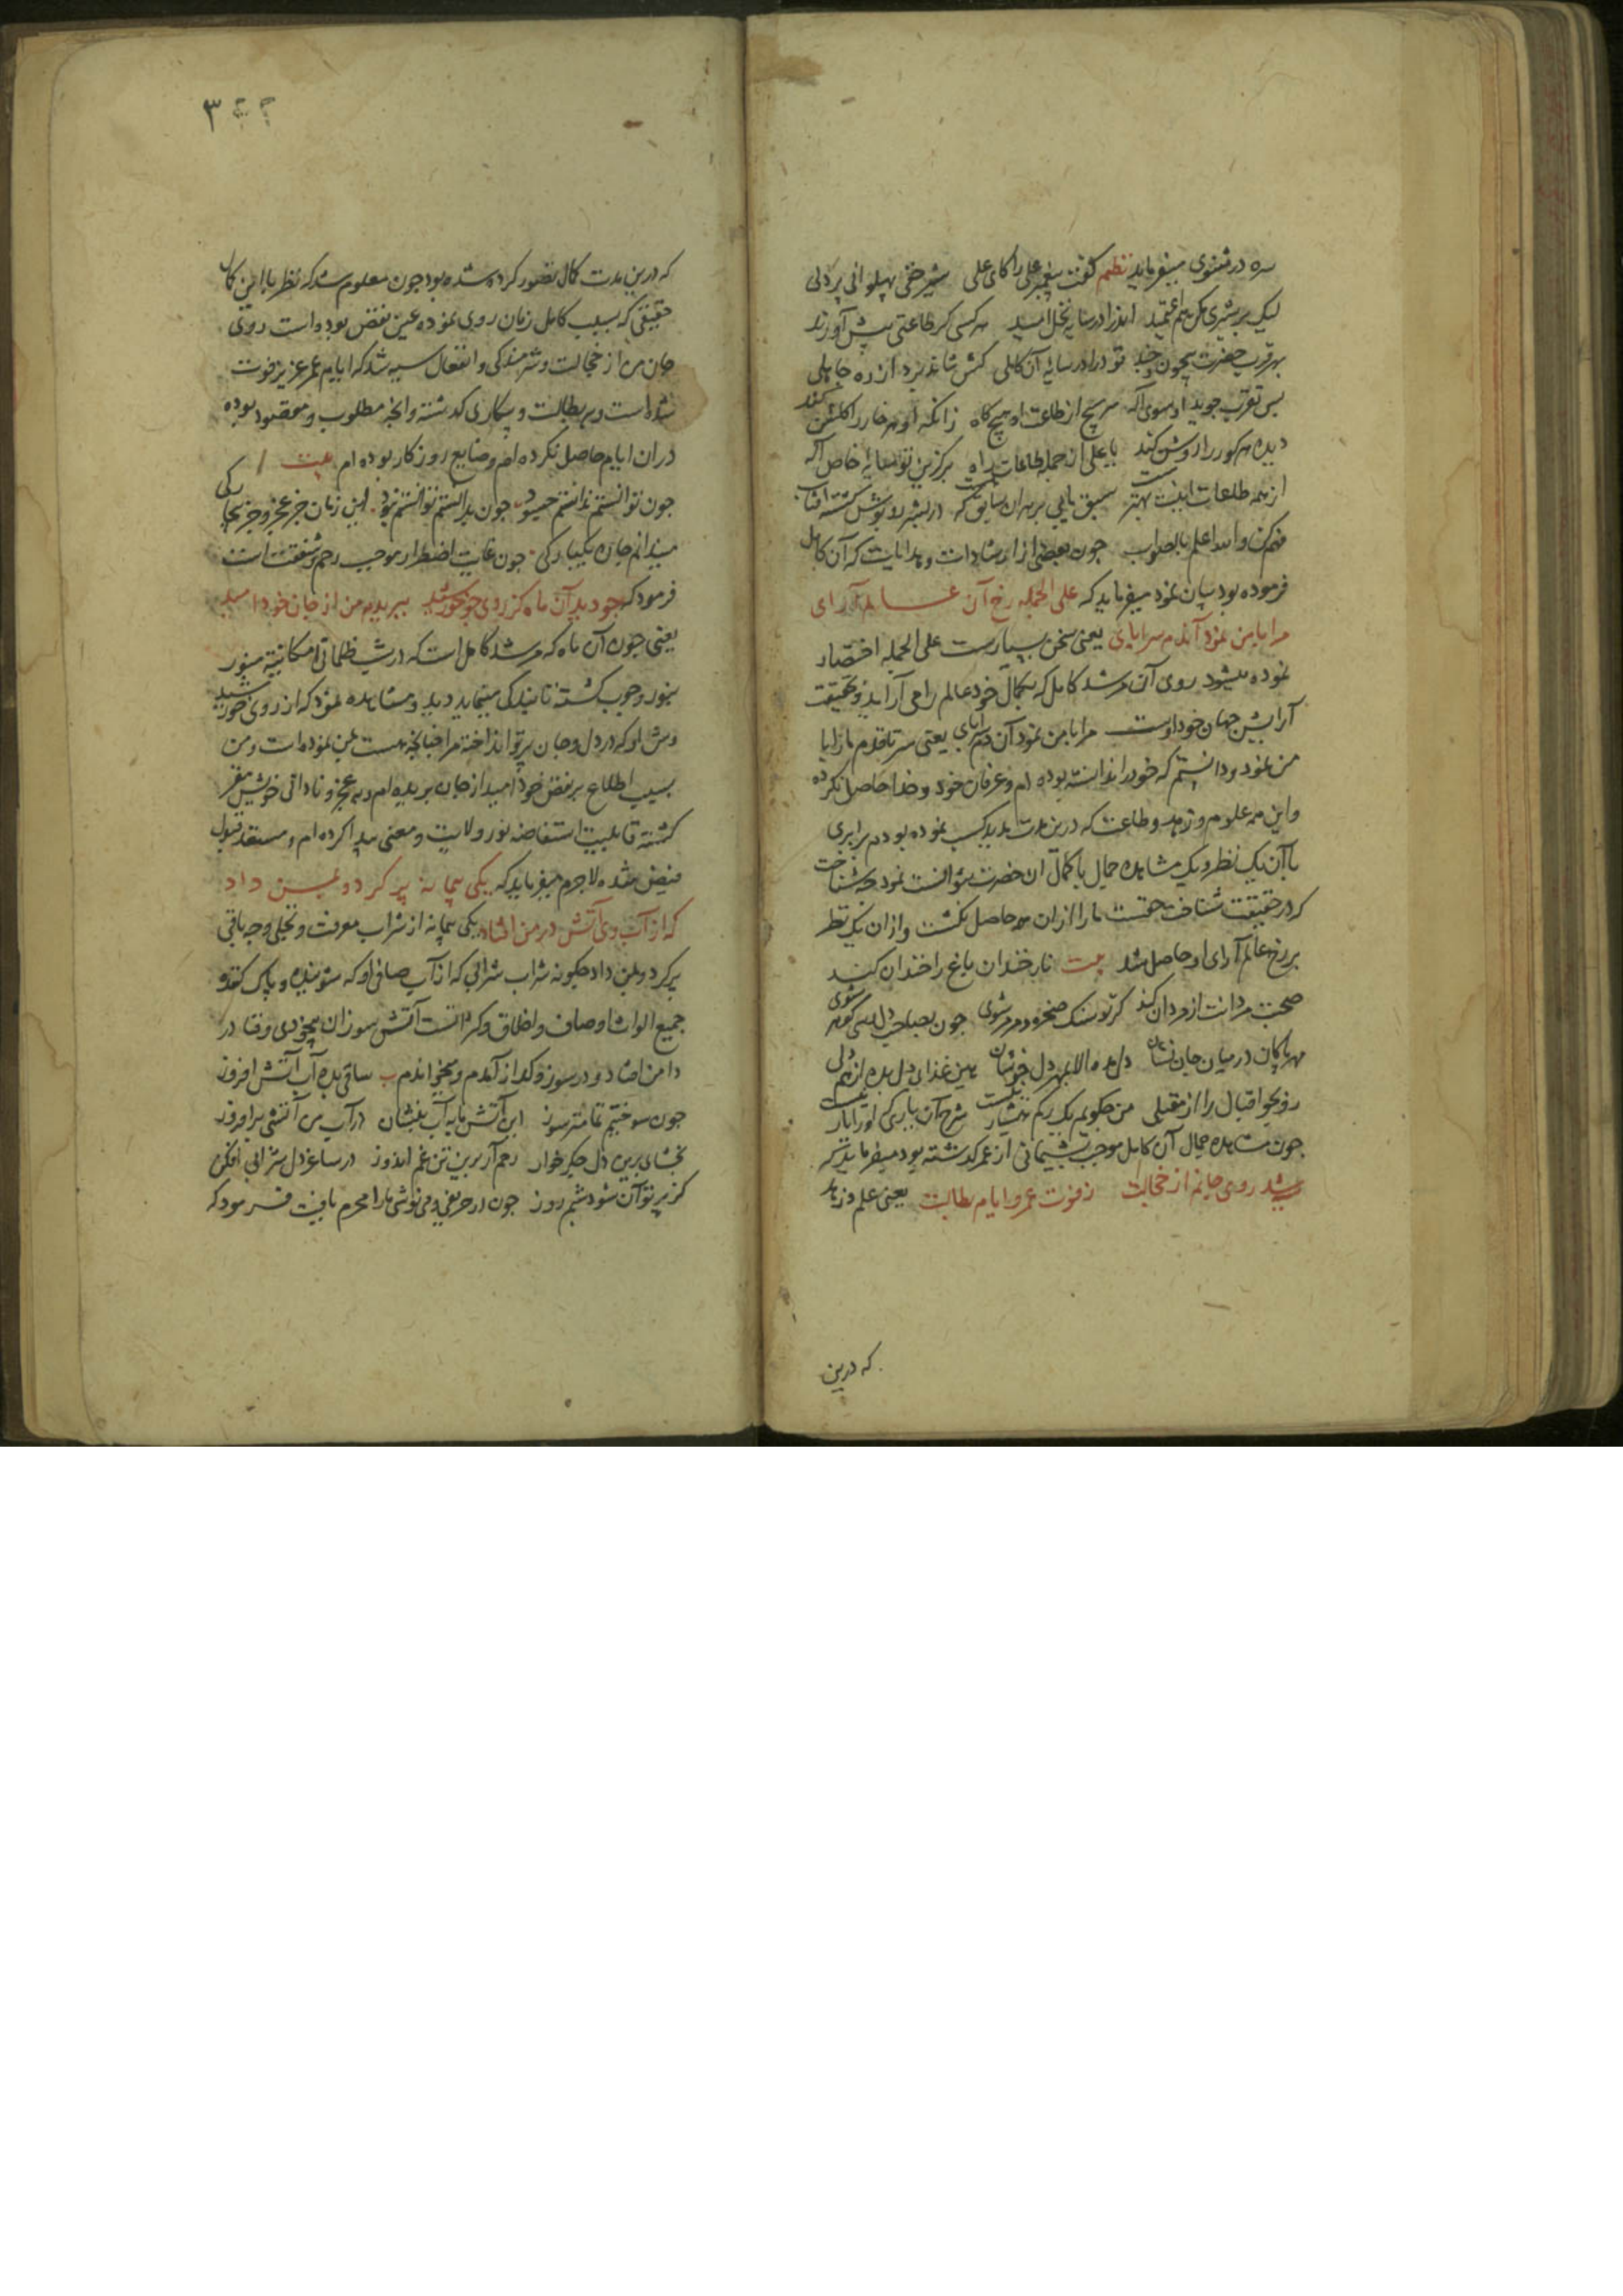 سره در مثنوی میفرماید نظم گفت پیغمبر علی را کای علی شیر حقی پهلوانی پردلی
لیک بر شیری مکن هم اعتمید اندرا در سایه نخل امید هر کسی گر طاعتی پیش آورند
بهر قرب حضرت بیچون و چند تو درا در سایه آن کاملی کش نتاند برد از ره جاهلی
پس تقرب جوید او سوی اله سر مپیچ از طاعت او هیچ کاه زانکه او هر خار را گلشن کند
دیده هر کور را روشن کند یا علی از جمله طاعات راه برگزین تو سایه خاص اله
از همه طاعات اینت بهتر است سبق یابی بر هر ان سابق که
فهم کن والله اعلم بالصواب چون بعضی از ارشادات و هدایات که آن کامل
فرموده بود بیان نمود میفرماید که علی الجمله رخ آن عالم آرای
مرا با من نمود آندم سراپای یعنی سخن بسیارست علی الجمله اختصار
نموده میشود روی آن مرشد کامل که بجمال خود عالم را می آراید و بحقیقت
آرایش جهان خود اوست مرا با من نمود آن دم سراپای یعنی سر تا قدم ما را با
من نمود و دانستم که خود را ندانسته بوده ام و عرفان خود و خدا حاصل نکرده
و این همه علوم و زهد و طاعت که درین مدت مدید کسب نموده بودم برابری
با آن یک نظر و یک مشاهده جمال با کمال ان حضرت نتوانست نمود چه شناخت
که در حقیقت شناخت حقست ما را ازان همه حاصل نگشت و ازان یک نظر
بر رخ عالم آرای او حاصل شد بیت نار خندان باغ را خندان کند
صحبت مردانت از مردان کند گر تو سنک صخره و مرمر شوی چون بصاحب دل رسی گوهر شوی
مهر پاکان در میان جان نشان دل مده الا بمهر دل خوشان هین غذای دل بده از هم دلی
رو بجو اقبال را از مقبلی من چگویم یک رگم هشیار نیست شرح آن یاری که او را یار نیست
چون مشاهده جمال آن کامل موجب پشیمانی از عمر گذشته بود میفرماید که
سیه شد روی جانم از خجالت ز فوت عمر و ایام بطالت یعنی علم و زهد
که درین
۳
که درین مدت کمال تصور کرده شده بود چون معلوم شد که نظر با این کمال
حقیقی که بسبب کامل زمان روی نموده عین نقص بوده است روی
جان من از خجالت و شرمندگی و انفعال سیه شد که ایام عمر عزیز فوت
شده است و بر بطالت و بیکاری گذشته و انچه مطلوب و مقصود بوده
دران ایام حاصل نکرده ام و ضایع روزکار بوده ام بیت
چون توانستم ندانستم چسود چون بدانستم توانستم نبود این زمان جز عجز و جز بیچارگی
میندانم چاره یکبارگی چون غایت اضطرار موجب رحم و شفقت است
فرمود که چو دید آن ماه کز روی چو خورشید ببریدم من از جان خود امید
یعنی چون آن ماه که مرشد کامل است که در شب ظلمانی امکانیة منور
بنور وجوب گشته تابندگی مینماید دید و مشاهده نمود که از روی خورشید
وش او که در دل و جان پرتو انداخته مرا چنانچه هست بمن نموده است و من
بسبب اطلاع بر نقص خود امید از جان بریده ام و به عجز و نادانی خویش مقر
گشته قابلیت استفاضه نور ولایت و معنی پیدا کرده ام و مستعد قبول
فیض شده لاجرم میفرماید که یکی پیمانه پر کرد و بمن داد
که از آب وی آتش در من افتاد یکی پیمانه از شراب معرفت و تجلی وجه باقی
پر کرد و بمن داد چگونه شراب شرابی که از آب صافی او که شوینده و پاک کننده
جمیع الواث اوصاف و اخلاق و کثرانست آتش سوزان بیخودی و فنا در
دامن افتاد و در سوز و گداز آمدم و میخواندم ب ساقی بده آب آتش افروز
چون سوختیم تمامتر سوز این آتش ما به آب بنشان در آب من آتشی برافروز
بخشای برین دل جگر خوار رحم آر برین تن غم اندوز در ساغر دل شرابی افکن
کز پرتو آن شود شبم روز چون در حریفی و می نوشی مارا محرم یافت فرمود که